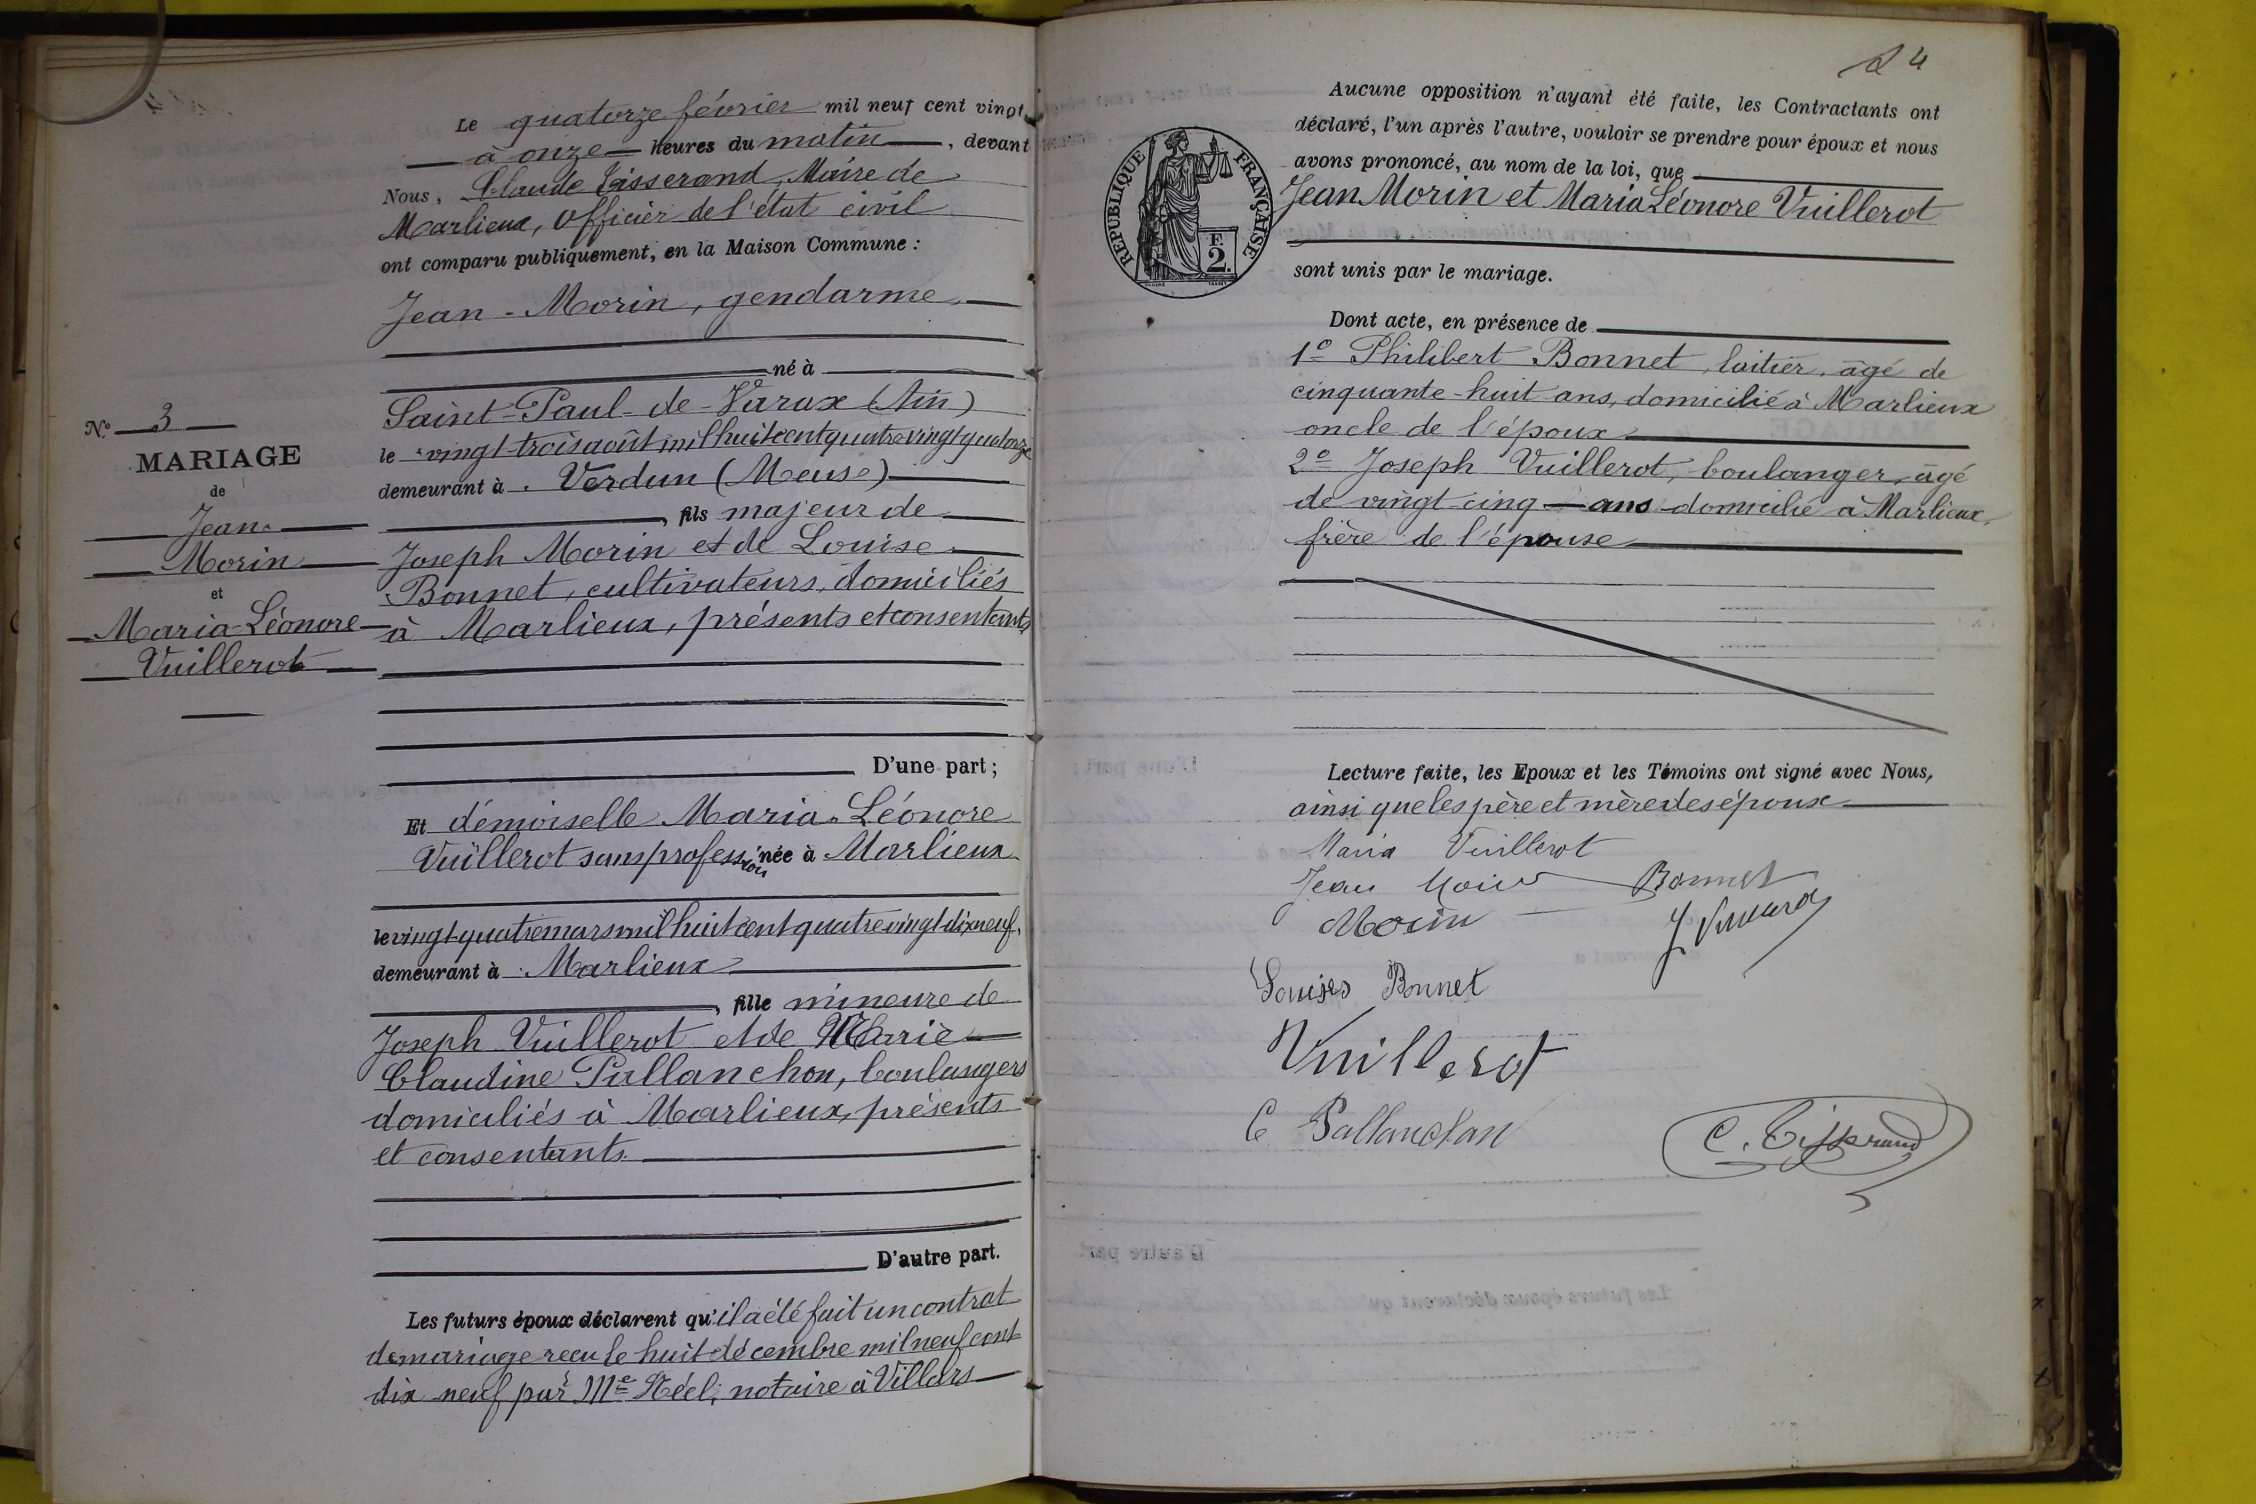 Le quatorze février mil neuf cent vingt
à onze heures du matin, devant
Nous, Claude Tisserand, Maire de
Marlieux, Officier de l'état civil
ont comparu publiquement, en la Maison Commune :
Jean-Morin, gendarme
né à
Saint-Paul-de-Varax (Ain)
le vingt-trois août mil huit cent quatre vingt quatorze
demeurant à Verdun (Meuse)
, fils majeur de
Joseph Morin et de Louise
Bonnet, cultivateurs, domiciliés
à Marlieux, présents et consentants
N° 3
MARIAGE
de
Jean
Morin
et
Maria Léonore
Vuillerot
D'une part ;
Et demoiselle Maria Léonore
Vuillerot sans profession née à Marlieux
le vingt-quatre mars mil huit cent quatre vingt dix neuf,
demeurant à Marlieux
, fille mineure de
Joseph Vuillerot et de Marie
Claudine Pallanchon, boulangers
domiciliés à Marlieux, présents
et consentants.
D'autre part.
Les futurs époux déclarent qu'il a été fait un contrat
de mariage reçu le huit décembre mil neuf cent
dix neuf par Me notaire à Villars
24
Aucune opposition n'ayant été faite, les Contractants ont
déclaré, l'un après l'autre, vouloir se prendre pour époux et nous
avons prononcé, au nom de la loi, que
Jean Morin et Maria Léonore Vuillerot
sont unis par le mariage.
REPUBLIQUE FRANÇAISE
F.
2.
Dont acte, en présence de
1° Philibert Bonnet, laitier, âgé de
cinquante-huit ans, domicilié à Marlieux
oncle de l'époux
2° Joseph Vuillerot, boulanger, âgé
de vingt-cinq ans domicilié à Marlieux,
frère de l'épouse
Lecture faite, les Epoux et les Témoins ont signé avec Nous,
ainsi que les père et mère des époux
Maria Vuillerot
Jean Morin Bonnet
Morin
J. Vuillerot
Louise Bonnet
Vuillerot
C Pallanchon
C. Tisserand